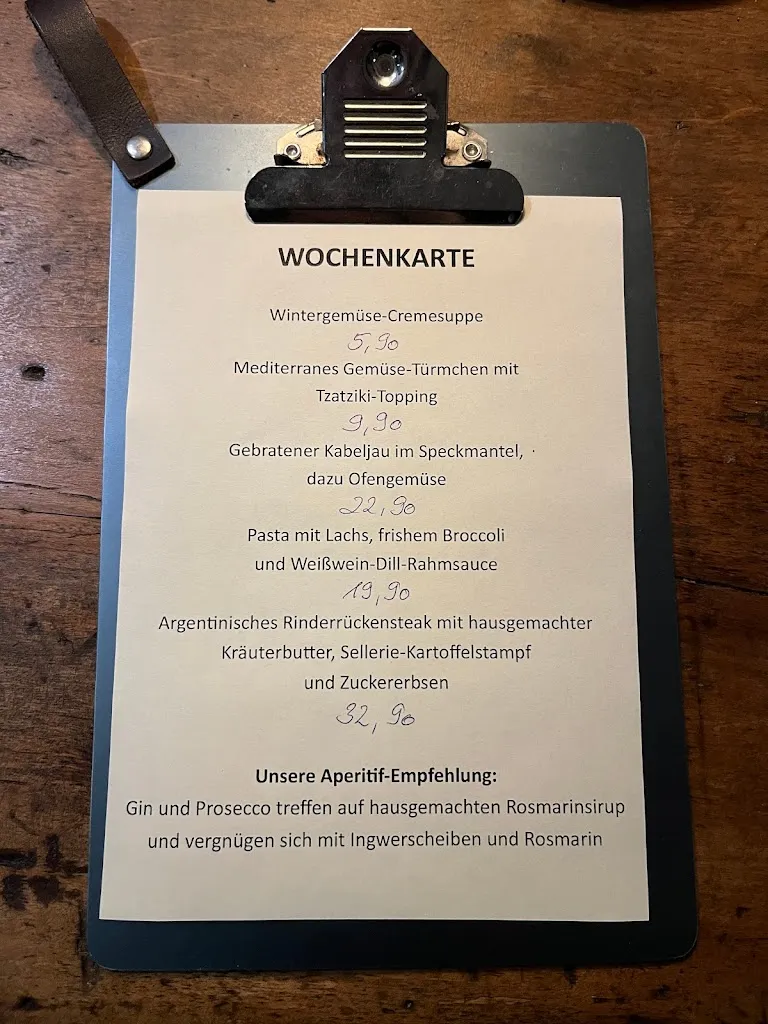 WOCHENKARTE
Wintergemüse-Cremesuppe
5,90
Mediterranes Gemüse-Türmchen mit
Tzatziki-Topping
9,90
Gebratener Kabeljau im Speckmantel,
dazu Ofengemüse
22,90
Pasta mit Lachs, frishem Broccoli
und Weißwein-Dill-Rahmsauce
19,90
Argentinisches Rinderrückensteak mit hausgemachter
Kräuterbutter, Sellerie-Kartoffelstampf
und Zuckererbsen
32,90
Unsere Aperitif-Empfehlung:
Gin und Prosecco treffen auf hausgemachten Rosmarinsirup
und vergnügen sich mit Ingwerscheiben und Rosmarin